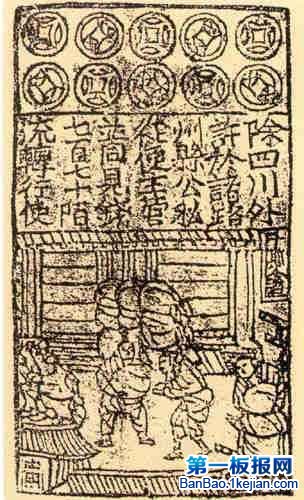 除四川外
許於諸路
州縣公私
從便主管
並同見錢
七百七十陌
流轉行使
第一板报网
BanBao.1kejian.com